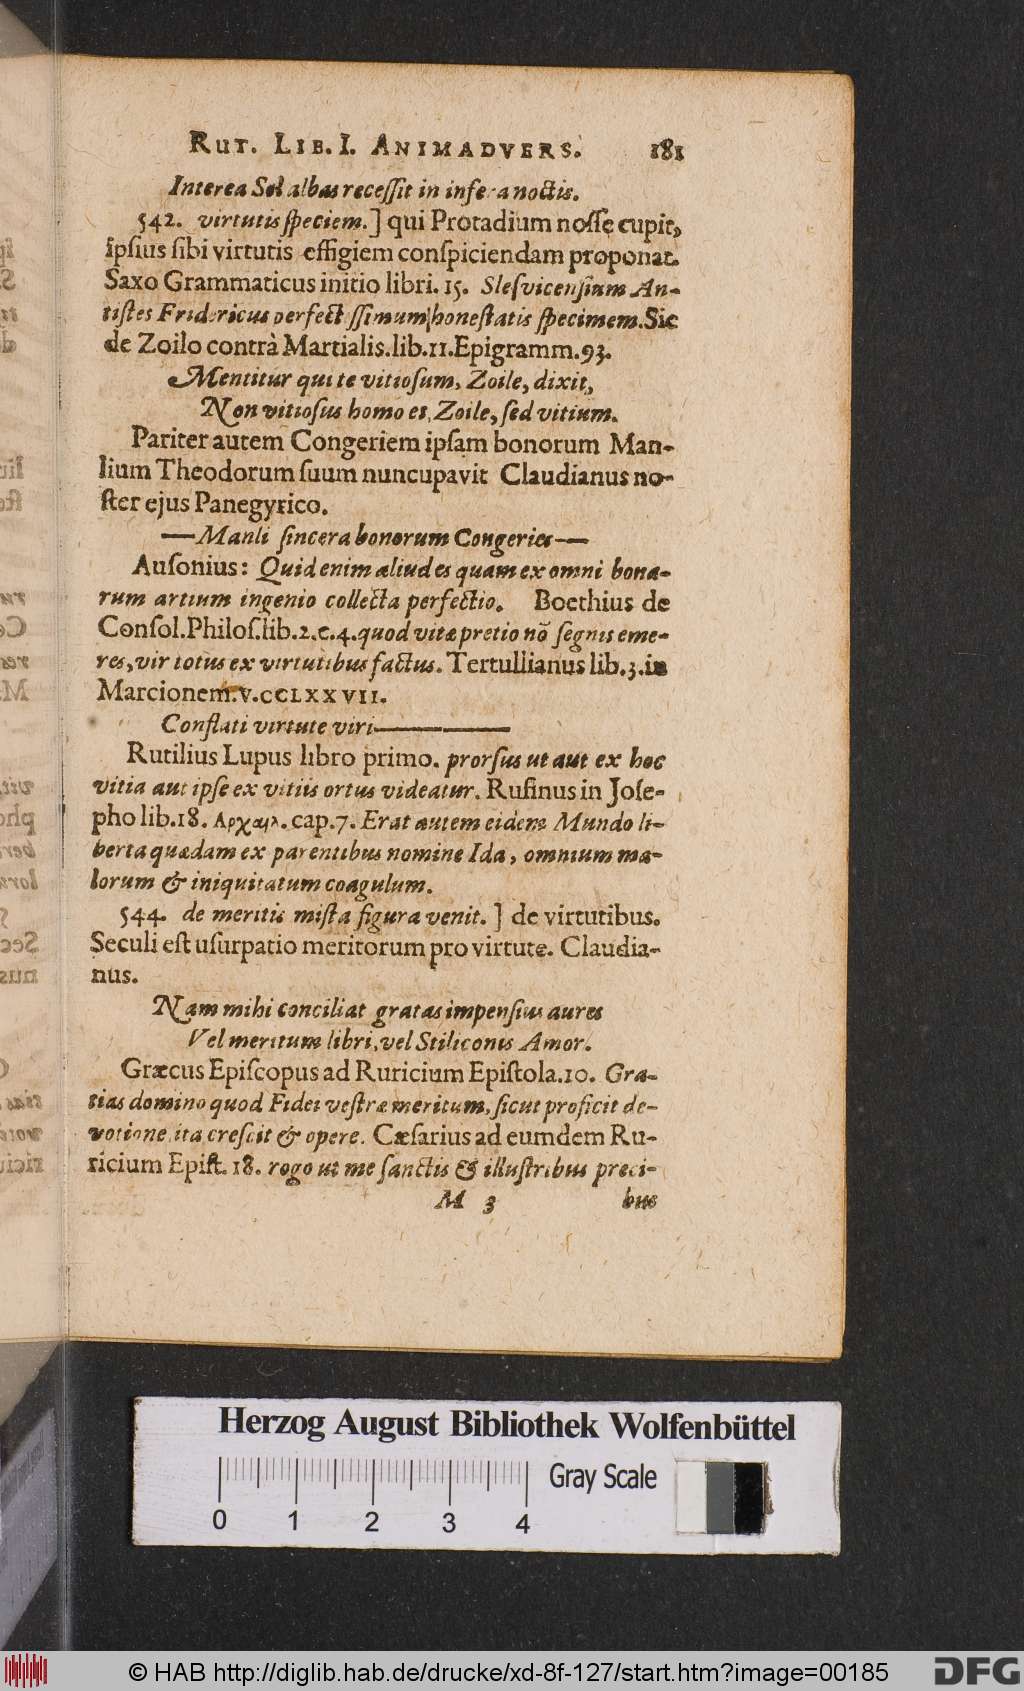 RUT. LIB. I. ANIMADVERS. 181
Interea Sol albus recessit in infera noctis.
542. virtutis speciem.] qui Protadium nosse cupit,
ipsius sibi virtutis effigiem conspiciendam proponat.
Saxo Grammaticus initio libri. 15. Slesvicensium An-
tistes Fridericus perfectissimum honestatis specimem. Sic
de Zoilo contrà Martialis. lib. 11. Epigramm. 93.
Mentitur qui te vitiosum, Zoile, dixit,
Non vitiosus homo es, Zoile, sed vitium.
Pariter autem Congeriem ipsam bonorum Man-
lium Theodorum suum nuncupavit Claudianus no-
ster ejus Panegyrico.
— Manli sincera bonorum Congeries —
Ausonius: Quid enim aliud es quam ex omni bona-
rum artium ingenio collecta perfectio. Boethius de
Consol. Philos. lib. 2. c. 4. quod vitæ pretio nõ segnis eme-
res, vir totus ex virtutibus factus. Tertullianus lib. 3. in
Marcionem. v. CCLXXVII.
Conflati virtute viri ———
Rutilius Lupus libro primo. prorsus ut aut ex hoc
vitia aut ipse ex vitiis ortus videatur. Rufinus in Jose-
pho lib. 18. Αρχαιλ. cap. 7. Erat autem eidem Mundo li-
berta quædam ex parentibus nomine Ida, omnium ma-
lorum & iniquitatum coagulum.
544. de meritis mista figura venit.] de virtutibus.
Seculi est usurpatio meritorum pro virtute. Claudia-
nus.
Nam mihi conciliat gratas impensius aures
Vel meritum libri, vel Stiliconis Amor.
Græcus Episcopus ad Ruricium Epistola. 10. Gra-
tias domino quod Fidei vestræ meritum, sicut proficit de-
votione, ita crescit & opere. Cæsarius ad eumdem Ru-
ricium Epist. 18. rogo ut me sanctis & illustribus preci-
M 3 bus
Herzog August Bibliothek Wolfenbüttel
Gray Scale
0 1 2 3 4
© HAB http://diglib.hab.de/drucke/xd-8f-127/start.htm?image=00185
DFG